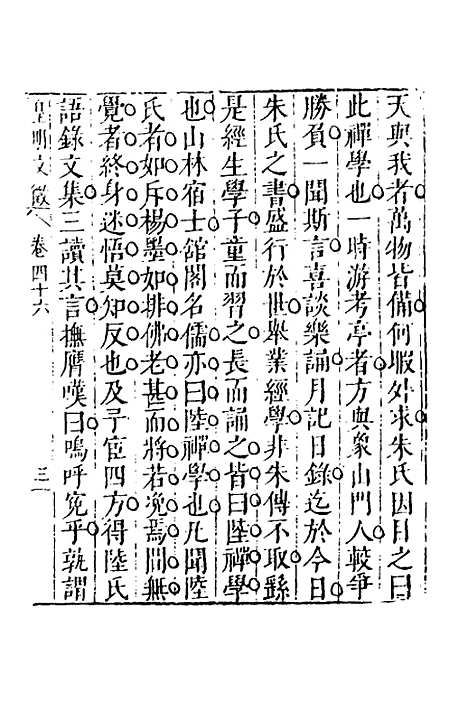 天與我者萬物皆備何暇外求朱氏因目之曰
此禪學也一時游考亭者方與象山門人較爭
勝負一聞斯言喜談樂誦月記日錄迄於今日
朱氏之書盛行於世舉業經學非朱傳不取繇
是經生學子童而習之長而誦之皆曰陸禪學
也山林宿士舘閣名儒亦曰陸禪學也凡聞陸
氏者如斥楊墨如排佛老甚而將若凂焉間無
覺者終身迷悟莫知反也及予宦四方得陸氏
語錄文集三讀其言撫膺嘆曰嗚呼寃乎孰謂
皇明文徵 卷四十六 三